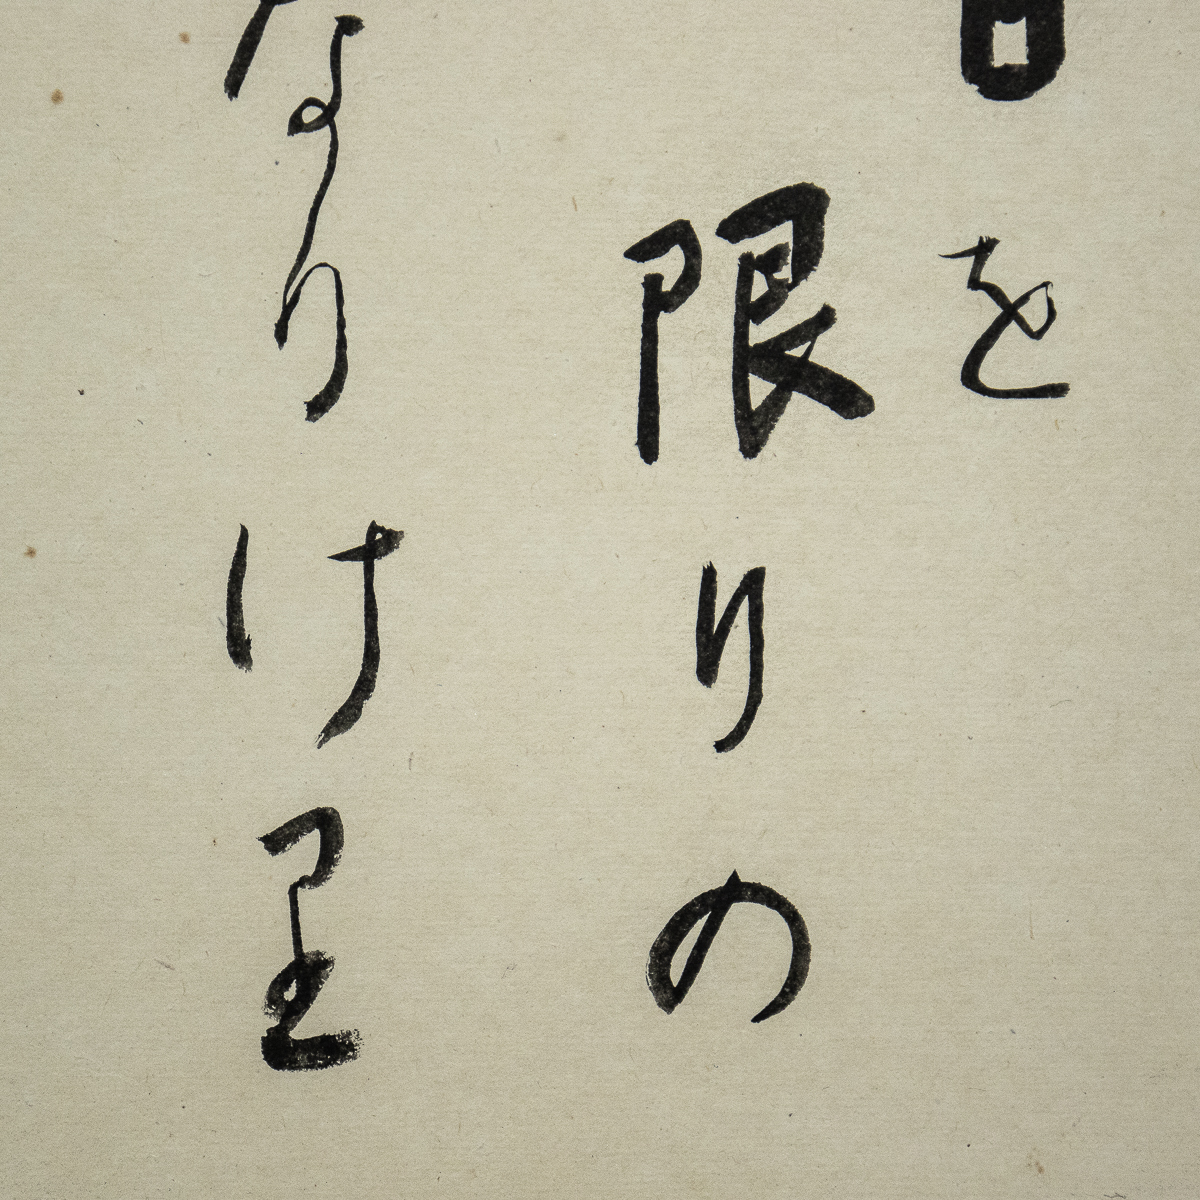 を
限りの
なりけ里